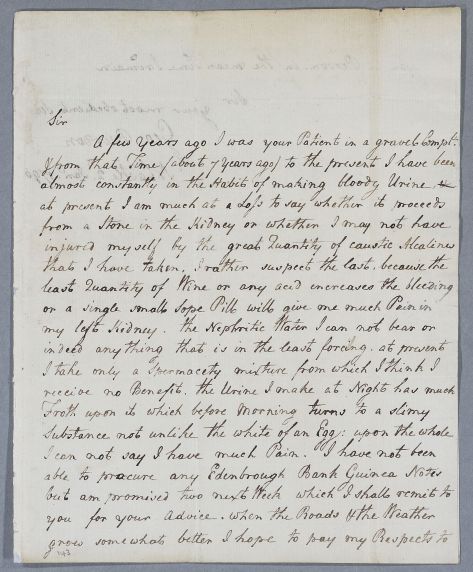 Sir
A few Years ago I was your Patient in a gravel Compt.
& from that Time (about 7 years ago) to the present I have been
almost constantly in the Habit of making bloody Urine
at present I am much at a Loss to say whether it proceeds
from a Stone in the Kidney or whether I may not have
injured myself by the great Quantity of caustic Alcalines
that I have taken, I rather suspect the last. because the
least Quantity of Wine or any acid increases the bleeding
or a single small Sope Pill will give me much Pain in
my left Kidney. the Nephritic Water I can not bear or
indeed any thing that is in the least forcing. at present
I take only a Spermacety mixture from which I think I
receive no Benefit. the Urine I make at Night has much
Froth upon it which before Morning turns to a slimy
Substance not unlike the white of an Egg: upon the whole
I can not say I have much Pain. I have not been
able to pracure any Edenbrough Bank Guinea Notes
but am promised two next Week which I shall remit to
you for your Advice. when the Roads & the Weather
grow somewhat better I hope to pay my Respects to
143